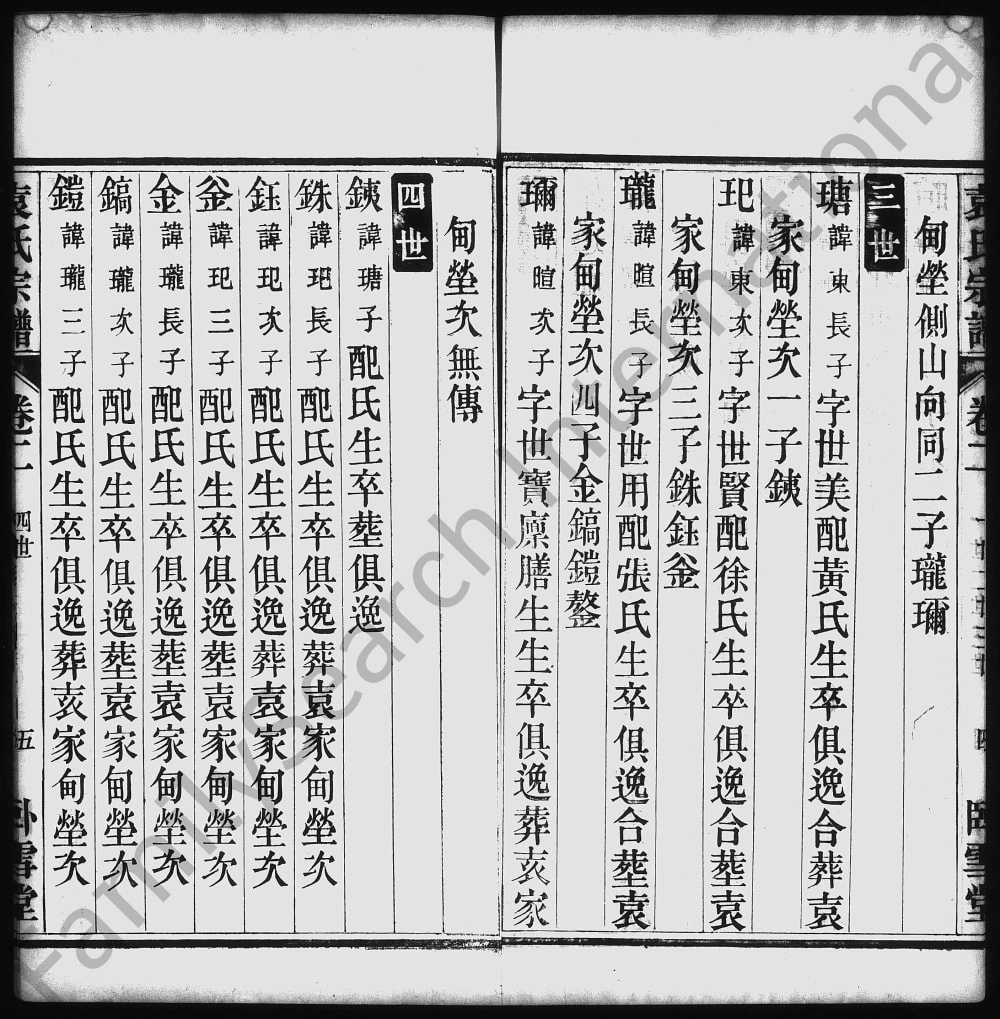 袁氏宗譜 卷二 四 臥雪堂
甸塋側山向同二子瓏瓕
三世
瑭諱東長子字世美配黃氏生卒俱逸合葬袁
家甸塋次一子銕
玘諱東次子字世賢配徐氏生卒俱逸合塟袁
家甸塋次三子銖鈺釡
瓏諱暄長子字世用配張氏生卒俱逸合塟袁
家甸塋次四子金鎬鎧鏊
瓕諱暄次子字世寶廩膳生生卒俱逸葬袁家
甸塋次無傳
四世
銕諱瑭子配氏生卒塟俱逸
銖諱玘長子配氏生卒俱逸葬袁家甸塋次
鈺諱玘次子配氏生卒俱逸葬袁家甸塋次
釡諱玘三子配氏生卒俱逸塟袁家甸塋次
金諱瓏長子配氏生卒俱逸塟袁家甸塋次
鎬諱瓏次子配氏生卒俱逸塟袁家甸塋次
鎧諱瓏三子配氏生卒俱逸葬袁家甸塋次
袁氏宗譜 卷二 四世 五 臥雪堂
FamilySearch International